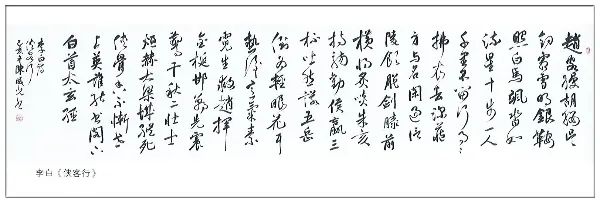 趙客縵胡纓吳
鉤霜雪明銀鞍
照白馬颯沓如
流星十步一人
千里不留行事了
拂衣去深藏
身與名閑過信
陵飲脫劍膝前
橫將炙啖朱亥
持觴勸侯嬴三
杯吐然諾五岳
倒為輕眼花耳
熱後意氣素
霓生救趙揮
金槌邯鄲先震
驚千秋二壯士
烜赫大梁城縱死
俠骨香不慚世
上英誰能書閣下
白首太玄經
李白詩
俠客行
李白《侠客行》